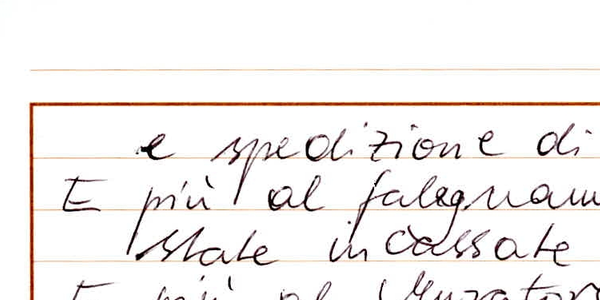 e spedizione di
E più al falegnam
state incassate
E più al